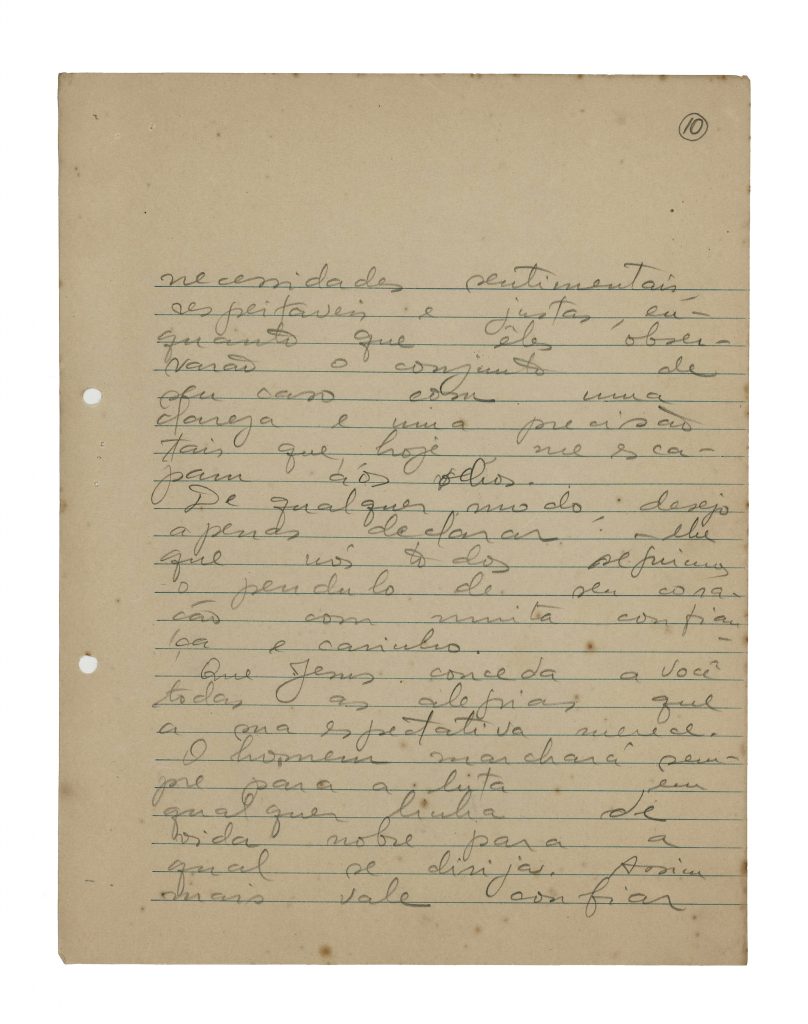 10
necessidades sentimentais,
respeitaveis e justas, en-
quanto que êles obser-
varão o conjunto de
seu caso com uma
clareza e uma precisão
tais que, hoje, me esca-
pam aós olhos.
De qualquer modo, desejo
apenas declarar-lhe
que nós todos seguimos
o pendulo de seu cora-
ção com muita confian-
ça e carinho.
Que Jesus conceda a você
todas as alegrias que
a sua espectativa merece.
O homem marchará sem-
pre para a luta em
qualquer linha de
vida nobre para a
qual se dirija. Assim
mais vale confiar